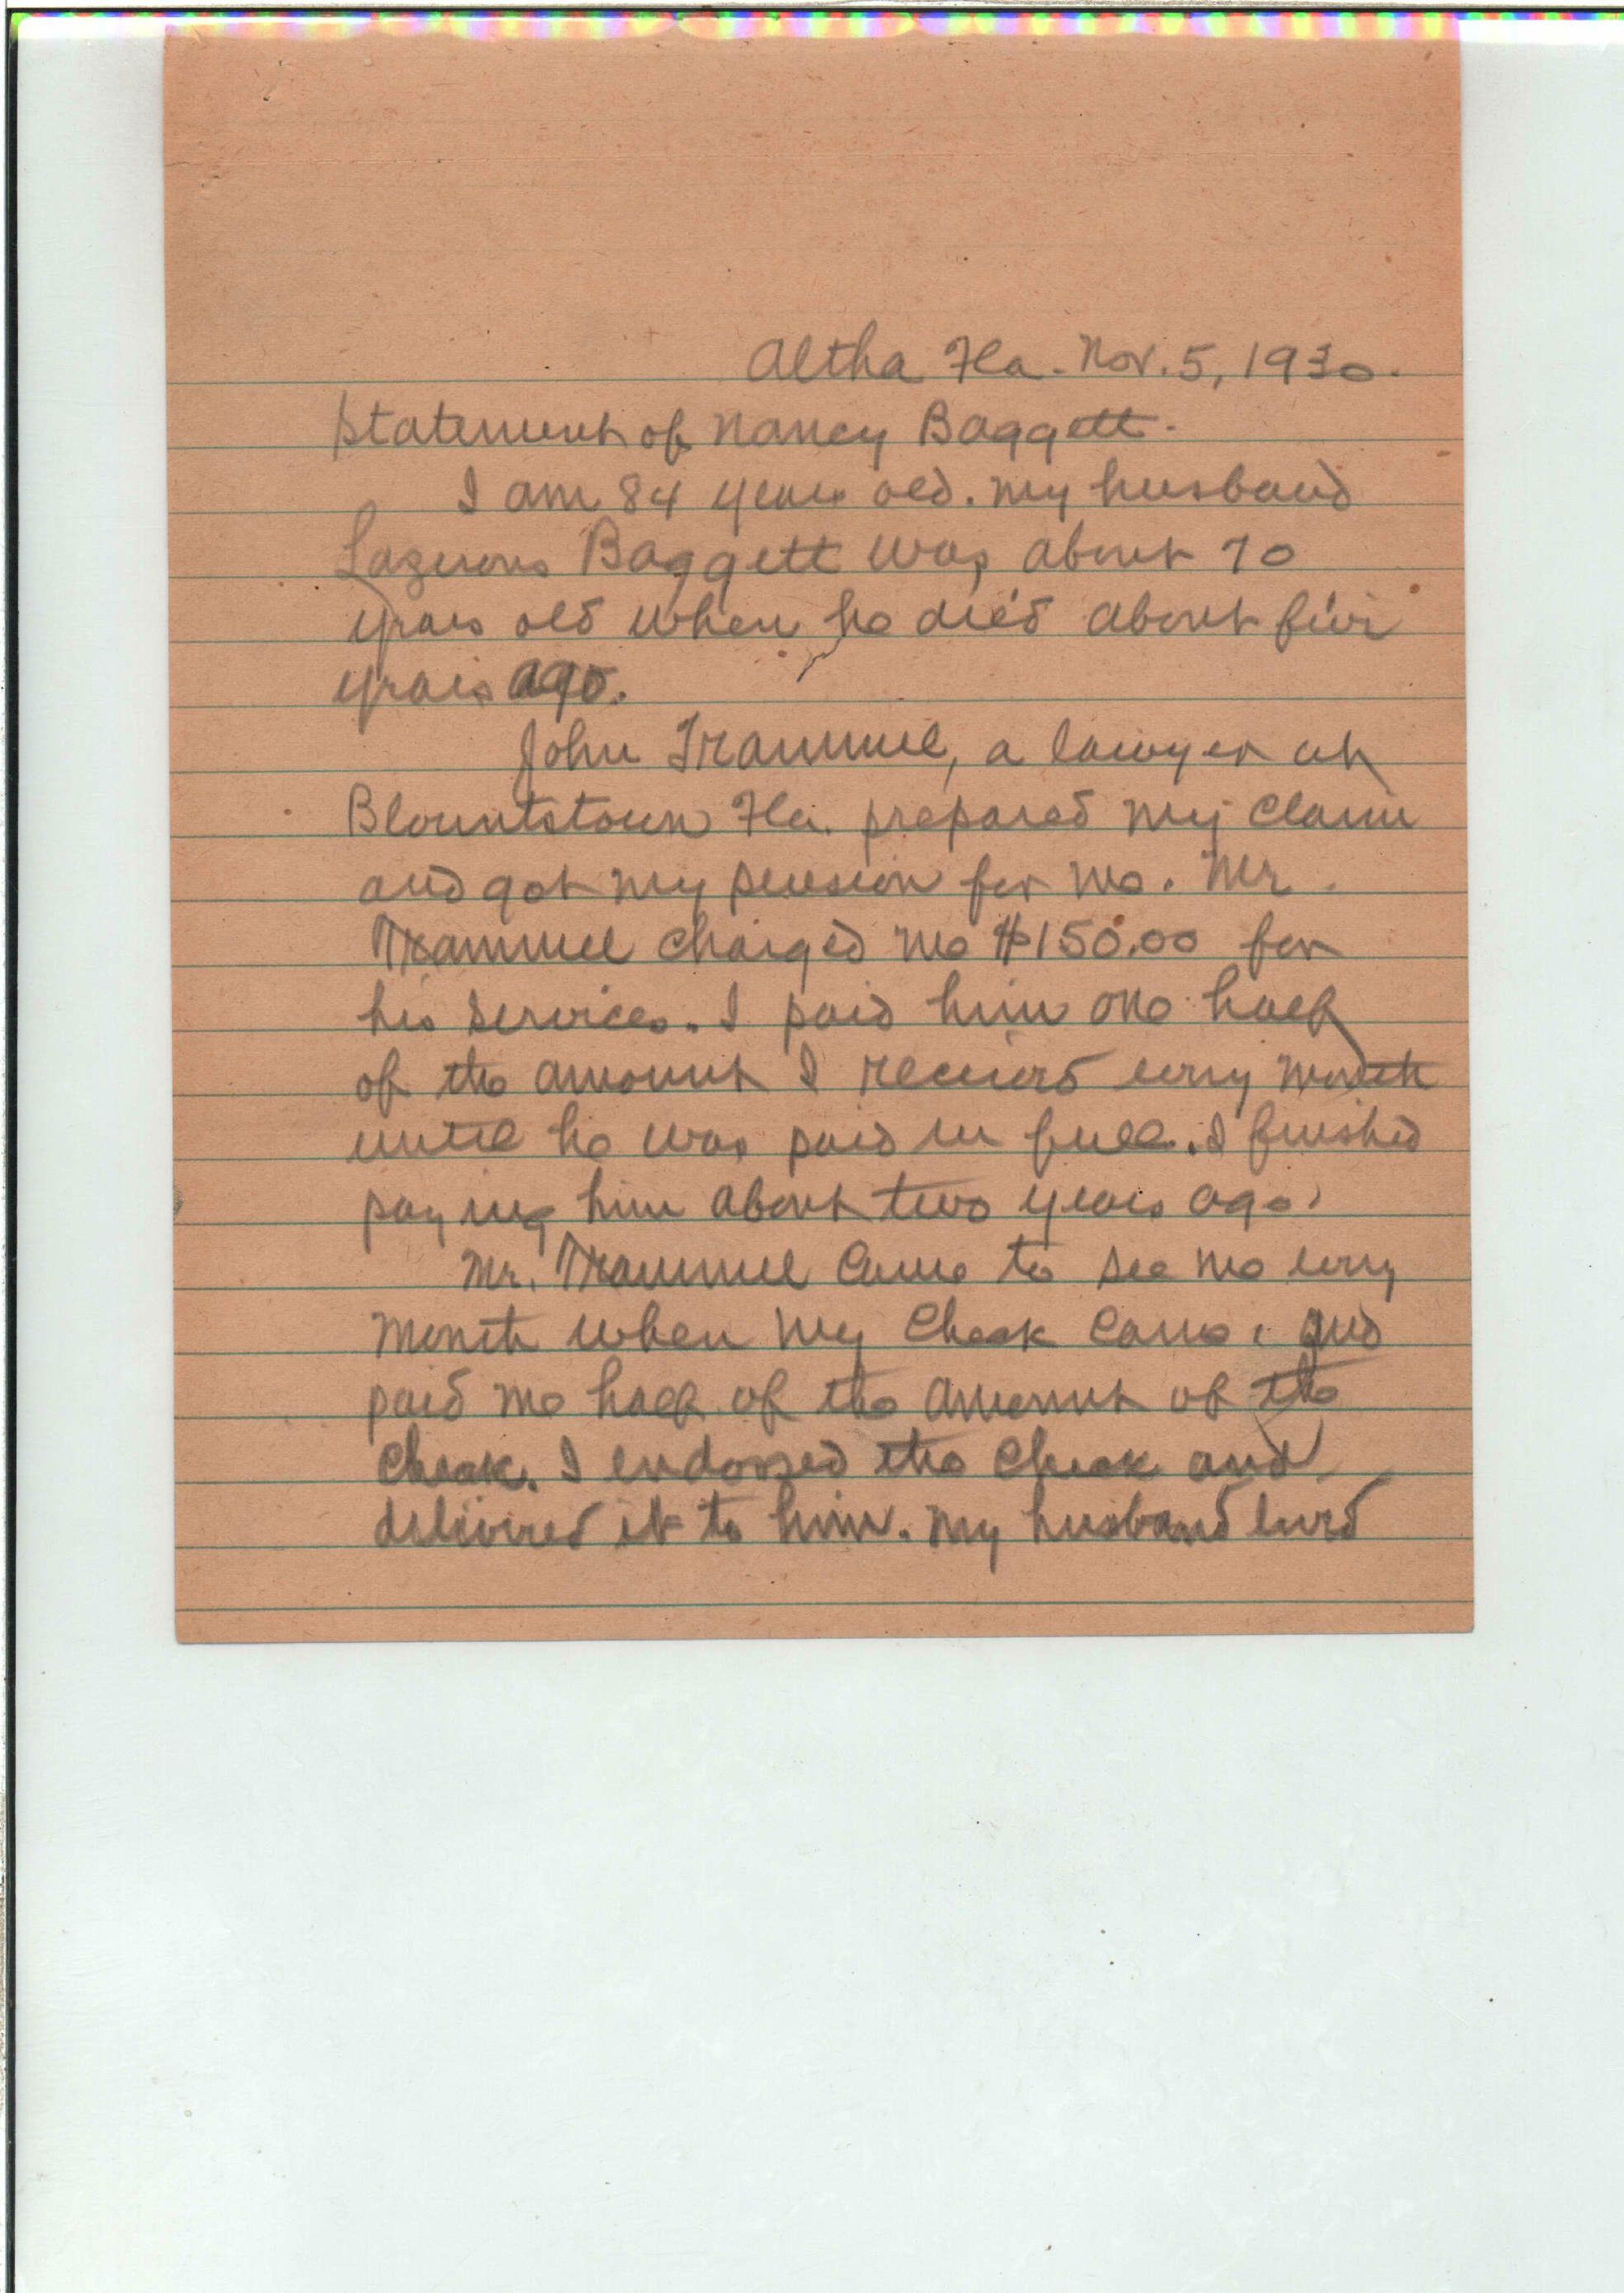 Altha Fla. Nov. 5, 1930.
Statement of Nancy Baggett.
I am 84 years old. My husband
Lazerous Baggett was about 70
years old when he died about five
years ago.
John Trammel, a lawyer at
Blountstown Fla. prepared my claim
and got my pension for me. Mr.
Trammel charged me $150.00 for
his services. I paid him one half
of the amount I received every month
until he was paid in full. I finished
paying him about two years ago.
Mr. Trammel came to see me every
month when my check came, and
paid me half of the amount of the
check. I endorsed the check and
delivered it to him. My husband lived